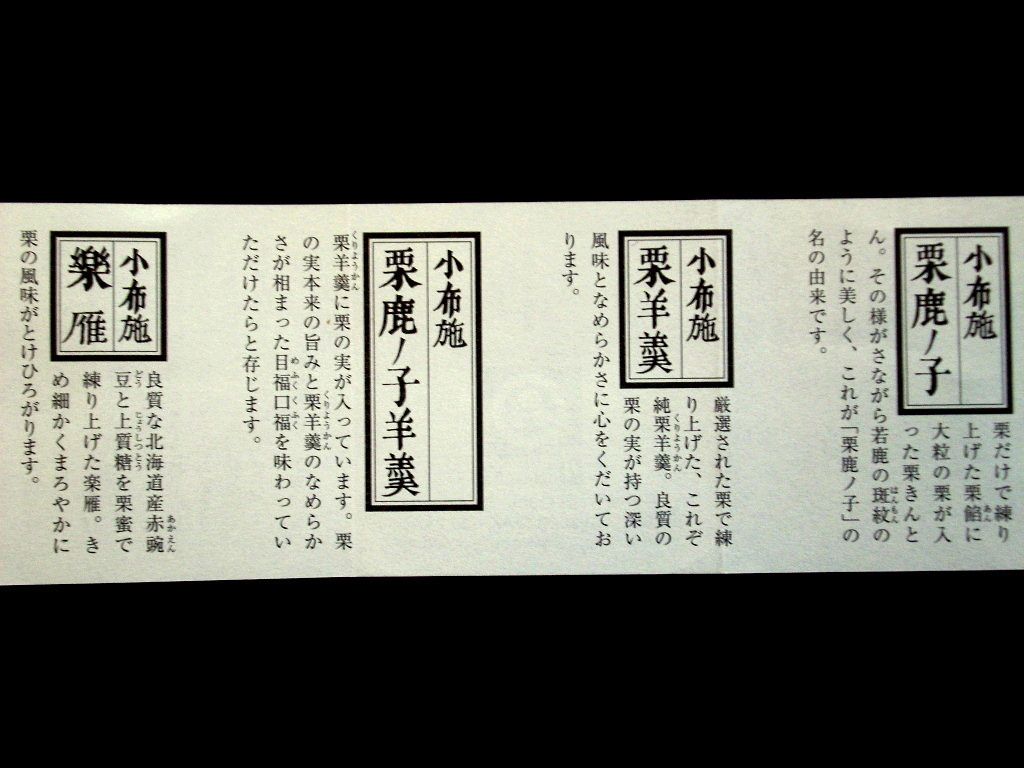 小布施
栗鹿ノ子
栗だけで練り
上げた栗餡に
大粒の栗が入
った栗きんと
ん。その様がさながら若鹿の斑紋の
ように美しく、これが「栗鹿ノ子」の
名の由来です。
小布施
栗羊羹
厳選された栗で練
り上げた、これぞ
純栗羊羹。良質の
栗の実が持つ深い
風味となめらかさに心をくだいてお
ります。
小布施
栗鹿ノ子羊羹
栗羊羹に栗の実が入っています。栗
の実本来の旨みと栗羊羹のなめらか
さが相まった目福口福を味わってい
ただけたらと存じます。
小布施
樂雁
良質な北海道産赤豌
豆と上質糖を栗蜜で
練り上げた楽雁。き
め細かくまろやかに
栗の風味がとけひろがります。